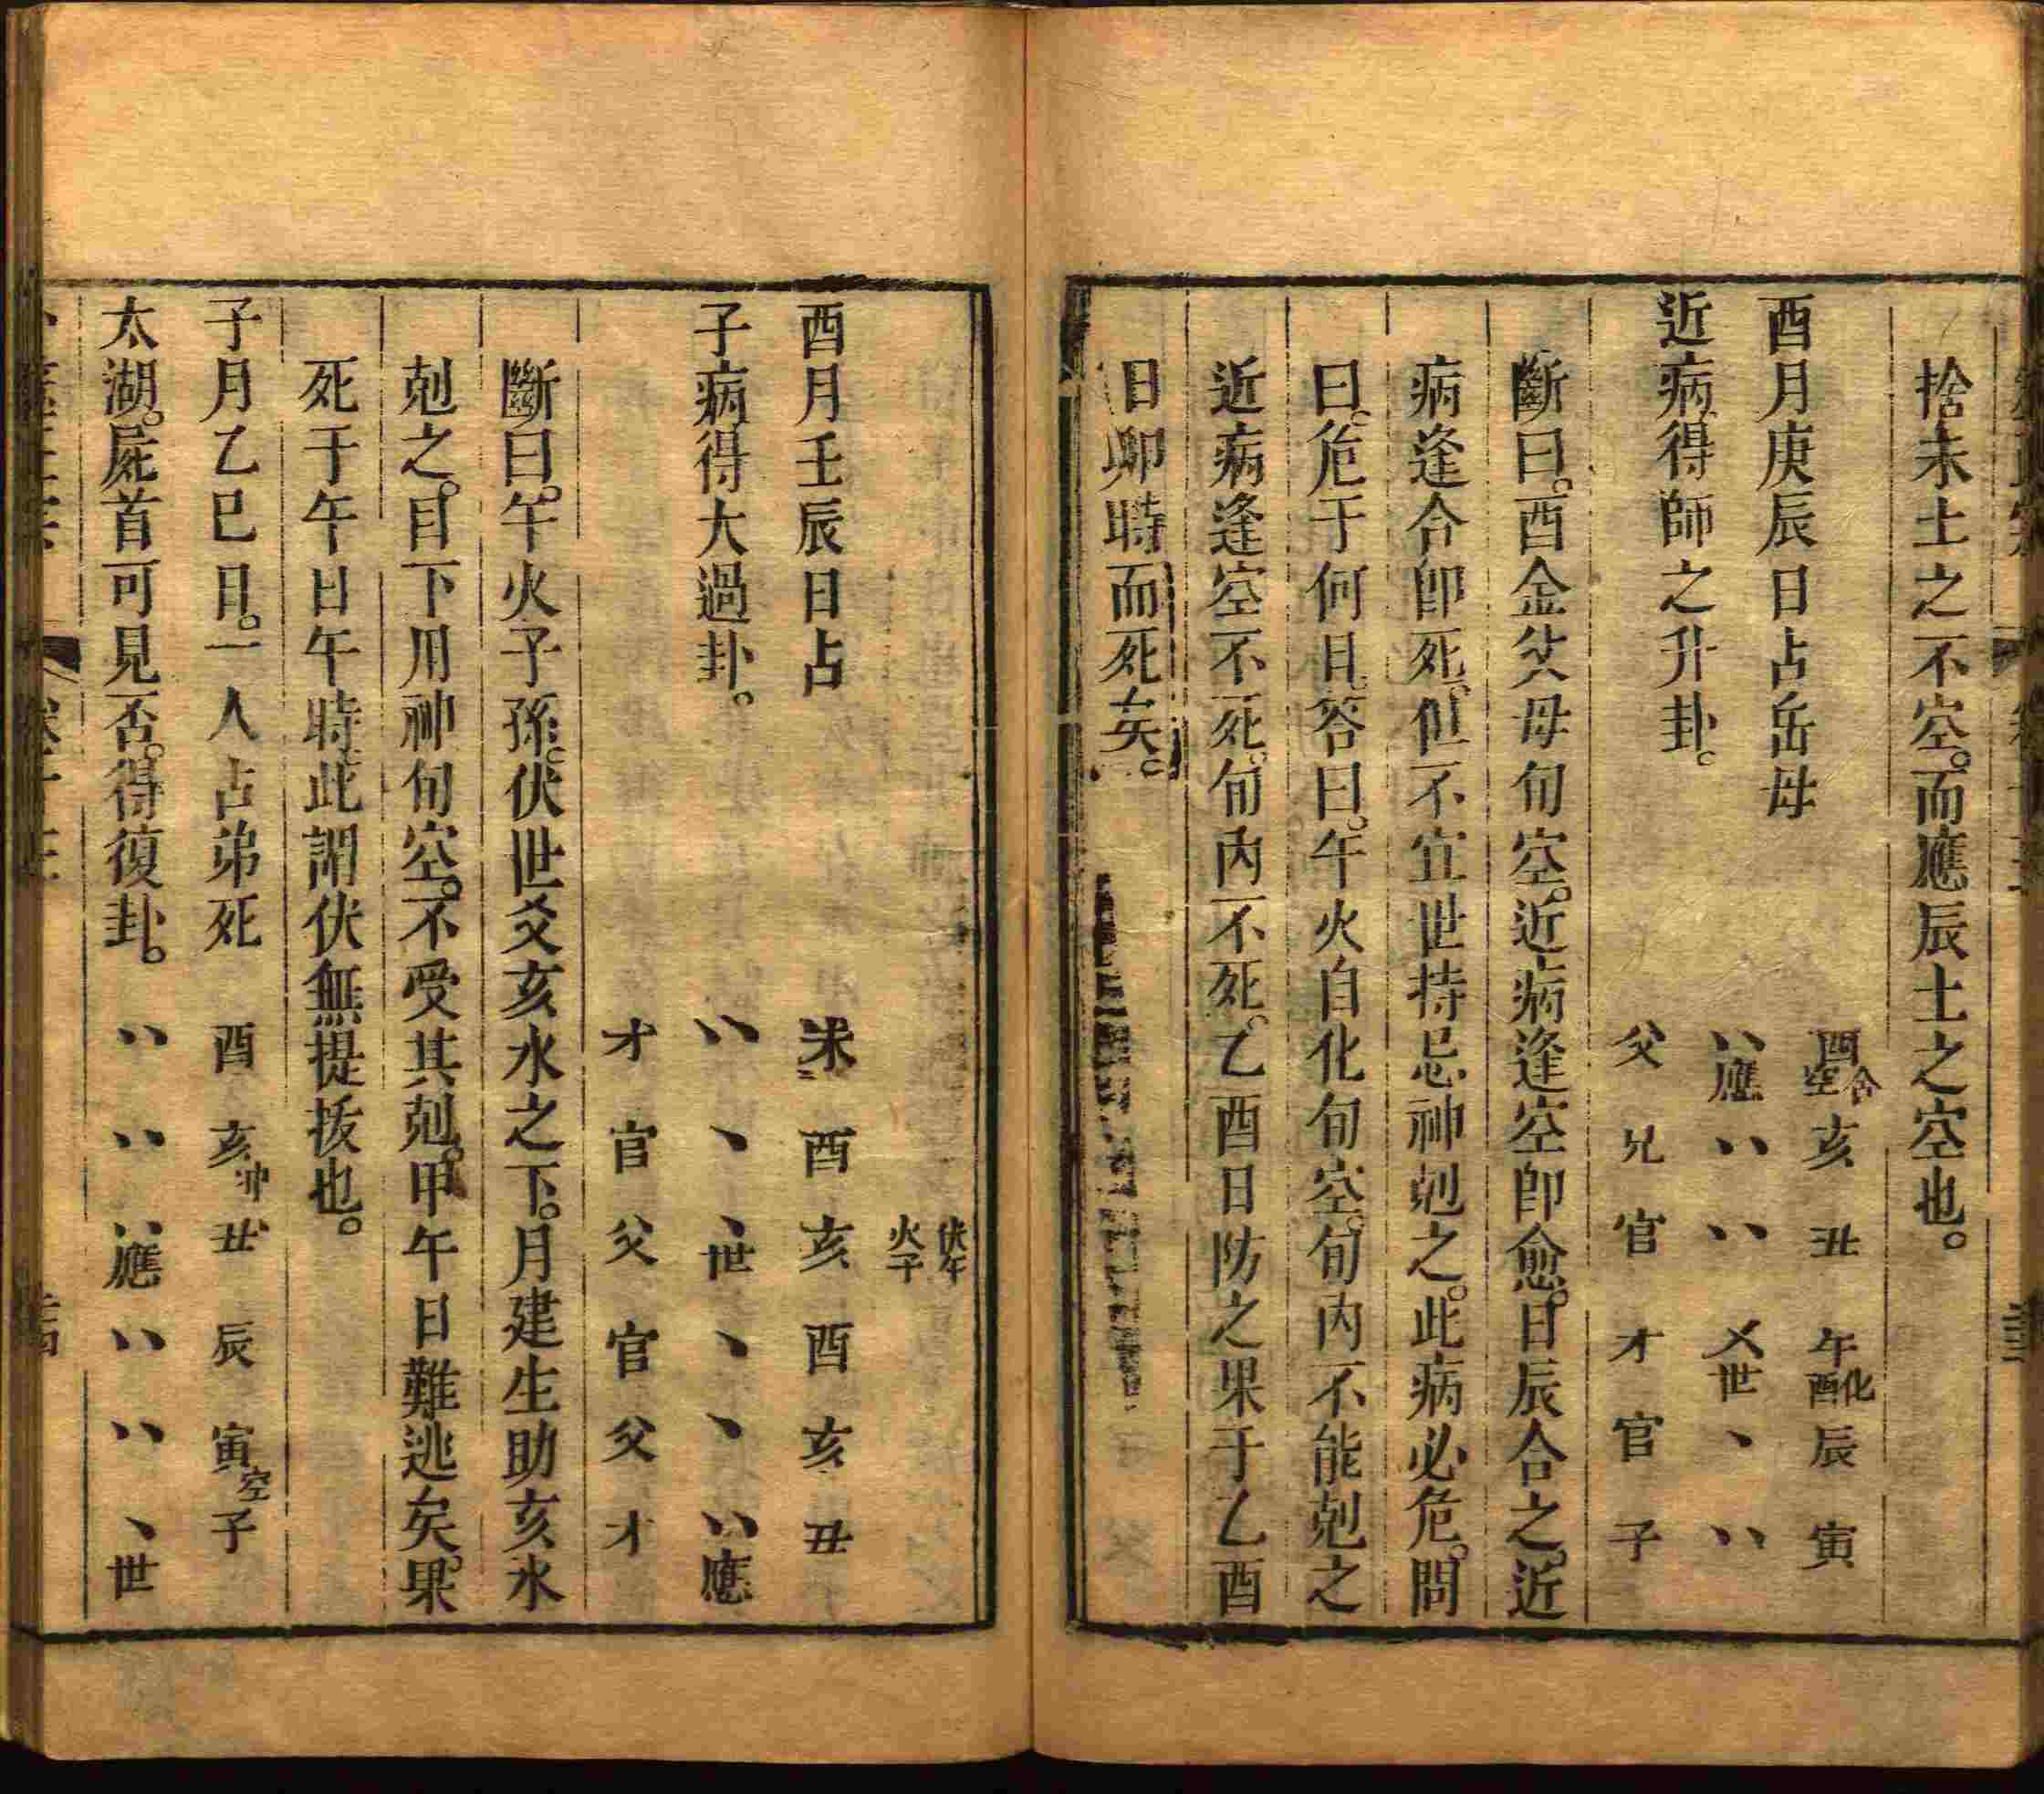 捨未土之不空。而應辰土之空也。
酉月庚辰日占岳母
近病。得師之升卦。
酉空合 亥 丑 午化酉 辰 寅
〃應 〃 〃 乂世 、 〃
父 兄 官 才 官 子
斷曰。酉金父母旬空。近病逢空即愈。日辰合之。近
病逢合即死。但不宜世持忌神剋之。此病必危。問
曰。危于何日。答曰。午火自化旬空。旬內不能剋之
近病逢空不死。旬內不死。乙酉日防之果于乙酉
日卯時而死矣。
酉月壬辰日占
子病得大過卦。
伏午火子
未 酉 亥 酉 亥 丑
〃 、 、世 、 、 〃應
才 官 父 官 父 才
斷曰。午火子孫。伏世爻亥水之下。月建生助亥水
剋之。目下用神旬空。不受其剋。甲午日難逃矣。果
死于午日午時。此謂伏無提拔也。
子月乙巳日。一人占弟死
太湖。屍首可見否。得復卦。
酉 亥冲 丑 辰 寅空 子
〃 〃 〃應 〃 〃 、世